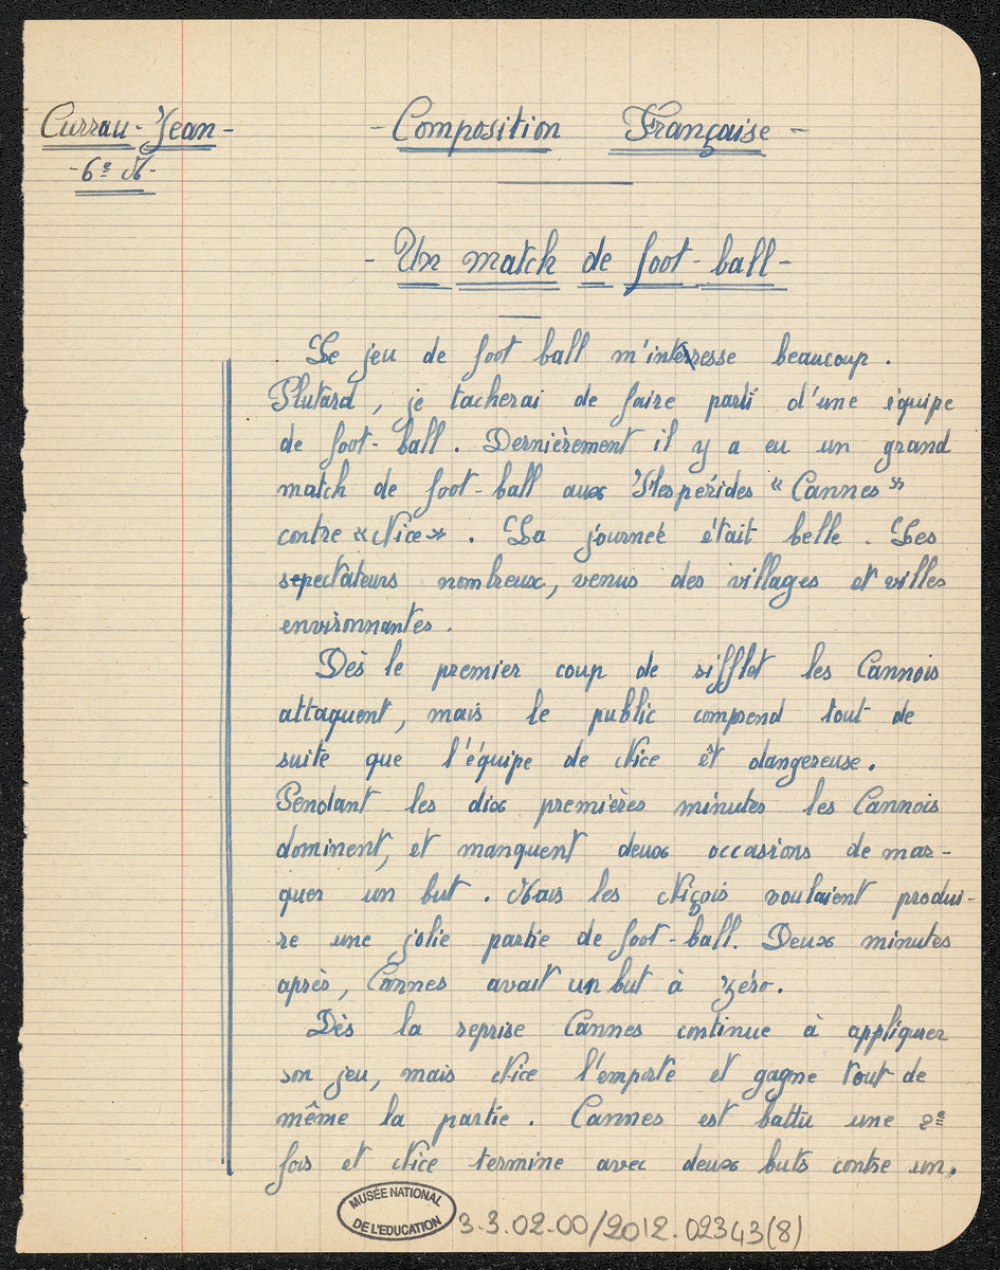 Currau-Jean-
- Composition Française -
- 6e M -
- Un match de foot-ball -
Le jeu de foot ball m'interresse beaucoup.
Plutard, je tacherai de faire parti d'une équipe
de foot-ball. Dernièrement il y a eu un grand
match de foot-ball aux Hespérides "Cannes"
contre «Nice». La journeé était belle. Les
sepectateurs nombreux, venus des villages et villes
environnantes.
Dès le premier coup de sifflet les Cannois
attaquent, mais le public comprend tout de
suite que l'équipe de Nice et dangereuse.
Pendant les dix premières minutes les Cannois
dominent, et manquent deux occasions de mar-
quer un but. Mais les Niçois voulaient produi-
re une jolie partie de foot-ball. Deux minutes
après, Cannes avait un but à zéro.
Dès la reprise Cannes continue à appliquer
son jeu, mais Nice l'emporte et gagne tout de
même la partie. Cannes est battu une 2e
fois et Nice termine avec deux buts contre un.
MUSÉE NATIONAL
DE L'EDUCATION
3-3.02.00/2012.02343(8)